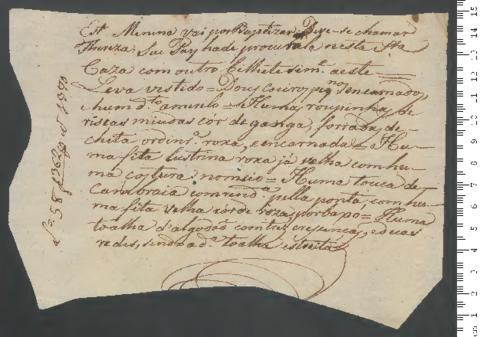 Est. Menina vai por Baptizar Deve-se chamar
Thereza. Seu Pay hade procurala nesta S.ta
Caza com outro bilhete sim.e a este
Leva vestido = Dous coeiros, encarnado,
hum amarelo = Huma roupinha de
riscas miudas côr de ganga, forrada de
chita ordin.a roxa, e encarnada = Hu-
ma fita lustrina roxa já velha com hu-
ma costura no meio = Huma touca de
Cambraia com renda pella ponta, com hu-
ma fita velha côr de roza, por papo = Huma
toalha d'algodão com tres
redes, sendo a d.a toalha estreita